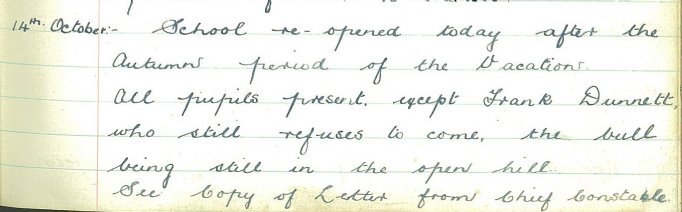 14th. October:- School re-opened today after the
Autumn period of the Vacation.
All pupils present, except Frank Dunnett,
who still refuses to come, the bull
being still in the open hill.
See Copy of Letter from Chief Constable